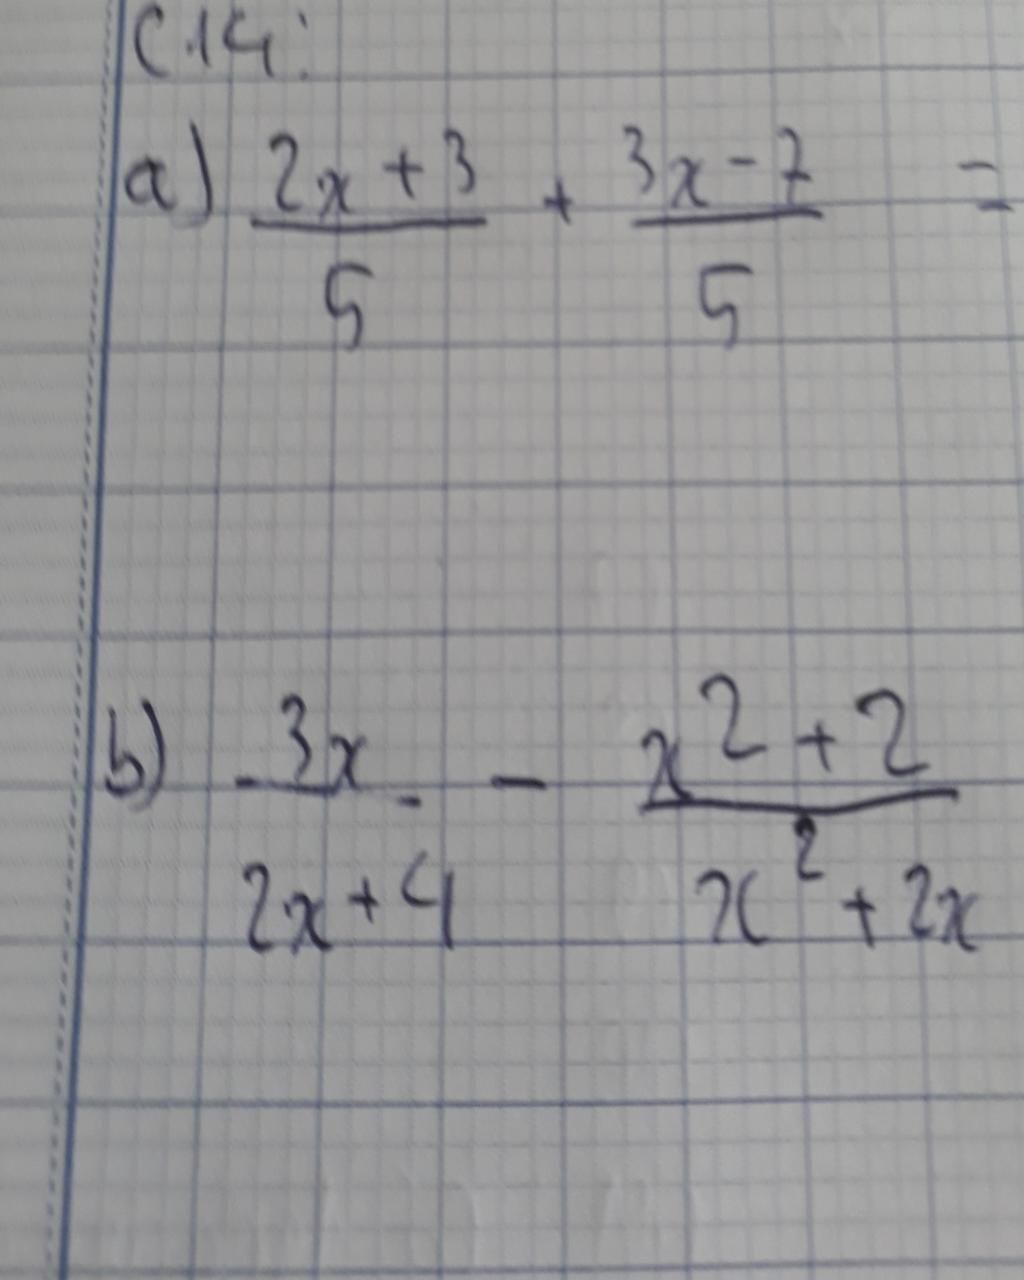 C14:
a) (2x + 3)/5 + (3x - 7)/5 =
b) 3x/(2x + 4) - (x² + 2)/(x² + 2x)